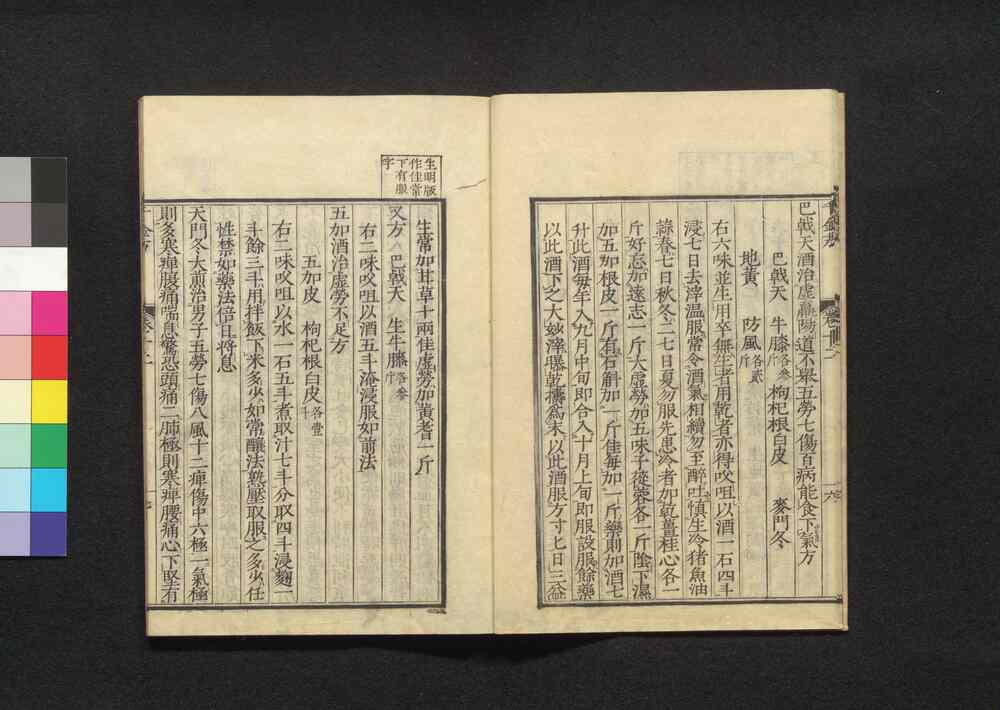 巴戟天酒治虛羸陽道不舉五勞七傷百病能食下氣方
巴戟天 牛膝各參斤 枸杞根白皮 麥門冬
地黃 防風各貳斤
右六味並生用卒無生者用乾者亦得㕮咀以酒一石四斗
浸七日去滓溫服常令酒氣相續勿至醉吐慎生冷猪魚油
蒜春七日秋冬二七日夏勿服先患冷者加乾薑桂心各一
斤好忘加遠志一斤大虛勞加五味子蓯蓉各一斤陰下濕
加五加根皮一斤有石斛加一斤佳每加一斤藥則加酒七
升此酒每年入九月中旬即合入十月上旬即服設服餘藥
以此酒下之大妙滓曝乾擣為末以此酒服方寸匕日三益
生明版
作佳常
下有服
字
生常加甘草十兩佳虛勞加黃耆一斤
又方 巴戟天 生牛膝各參斤
右二味㕮咀以酒五斗淹浸服如前法
五加酒治虛勞不足方
五加皮 枸杞根白皮各壹斗
右二味㕮咀以水一石五斗煮取汁七斗分取四斗浸麴一
斗餘三斗用拌飯下米多少如常釀法熟壓取服之多少任
性禁如藥法倍日將息
天門冬大煎治男子五勞七傷八風十二痺傷中六極一氣極
則多寒痺腹痛喘息驚恐頭痛二肺極則寒痺腰痛心下堅有